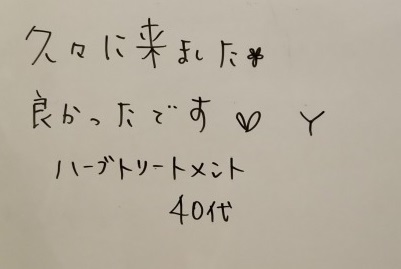 久々に来ました✽
良かったです♡ Y
ハーブトリートメント
40代